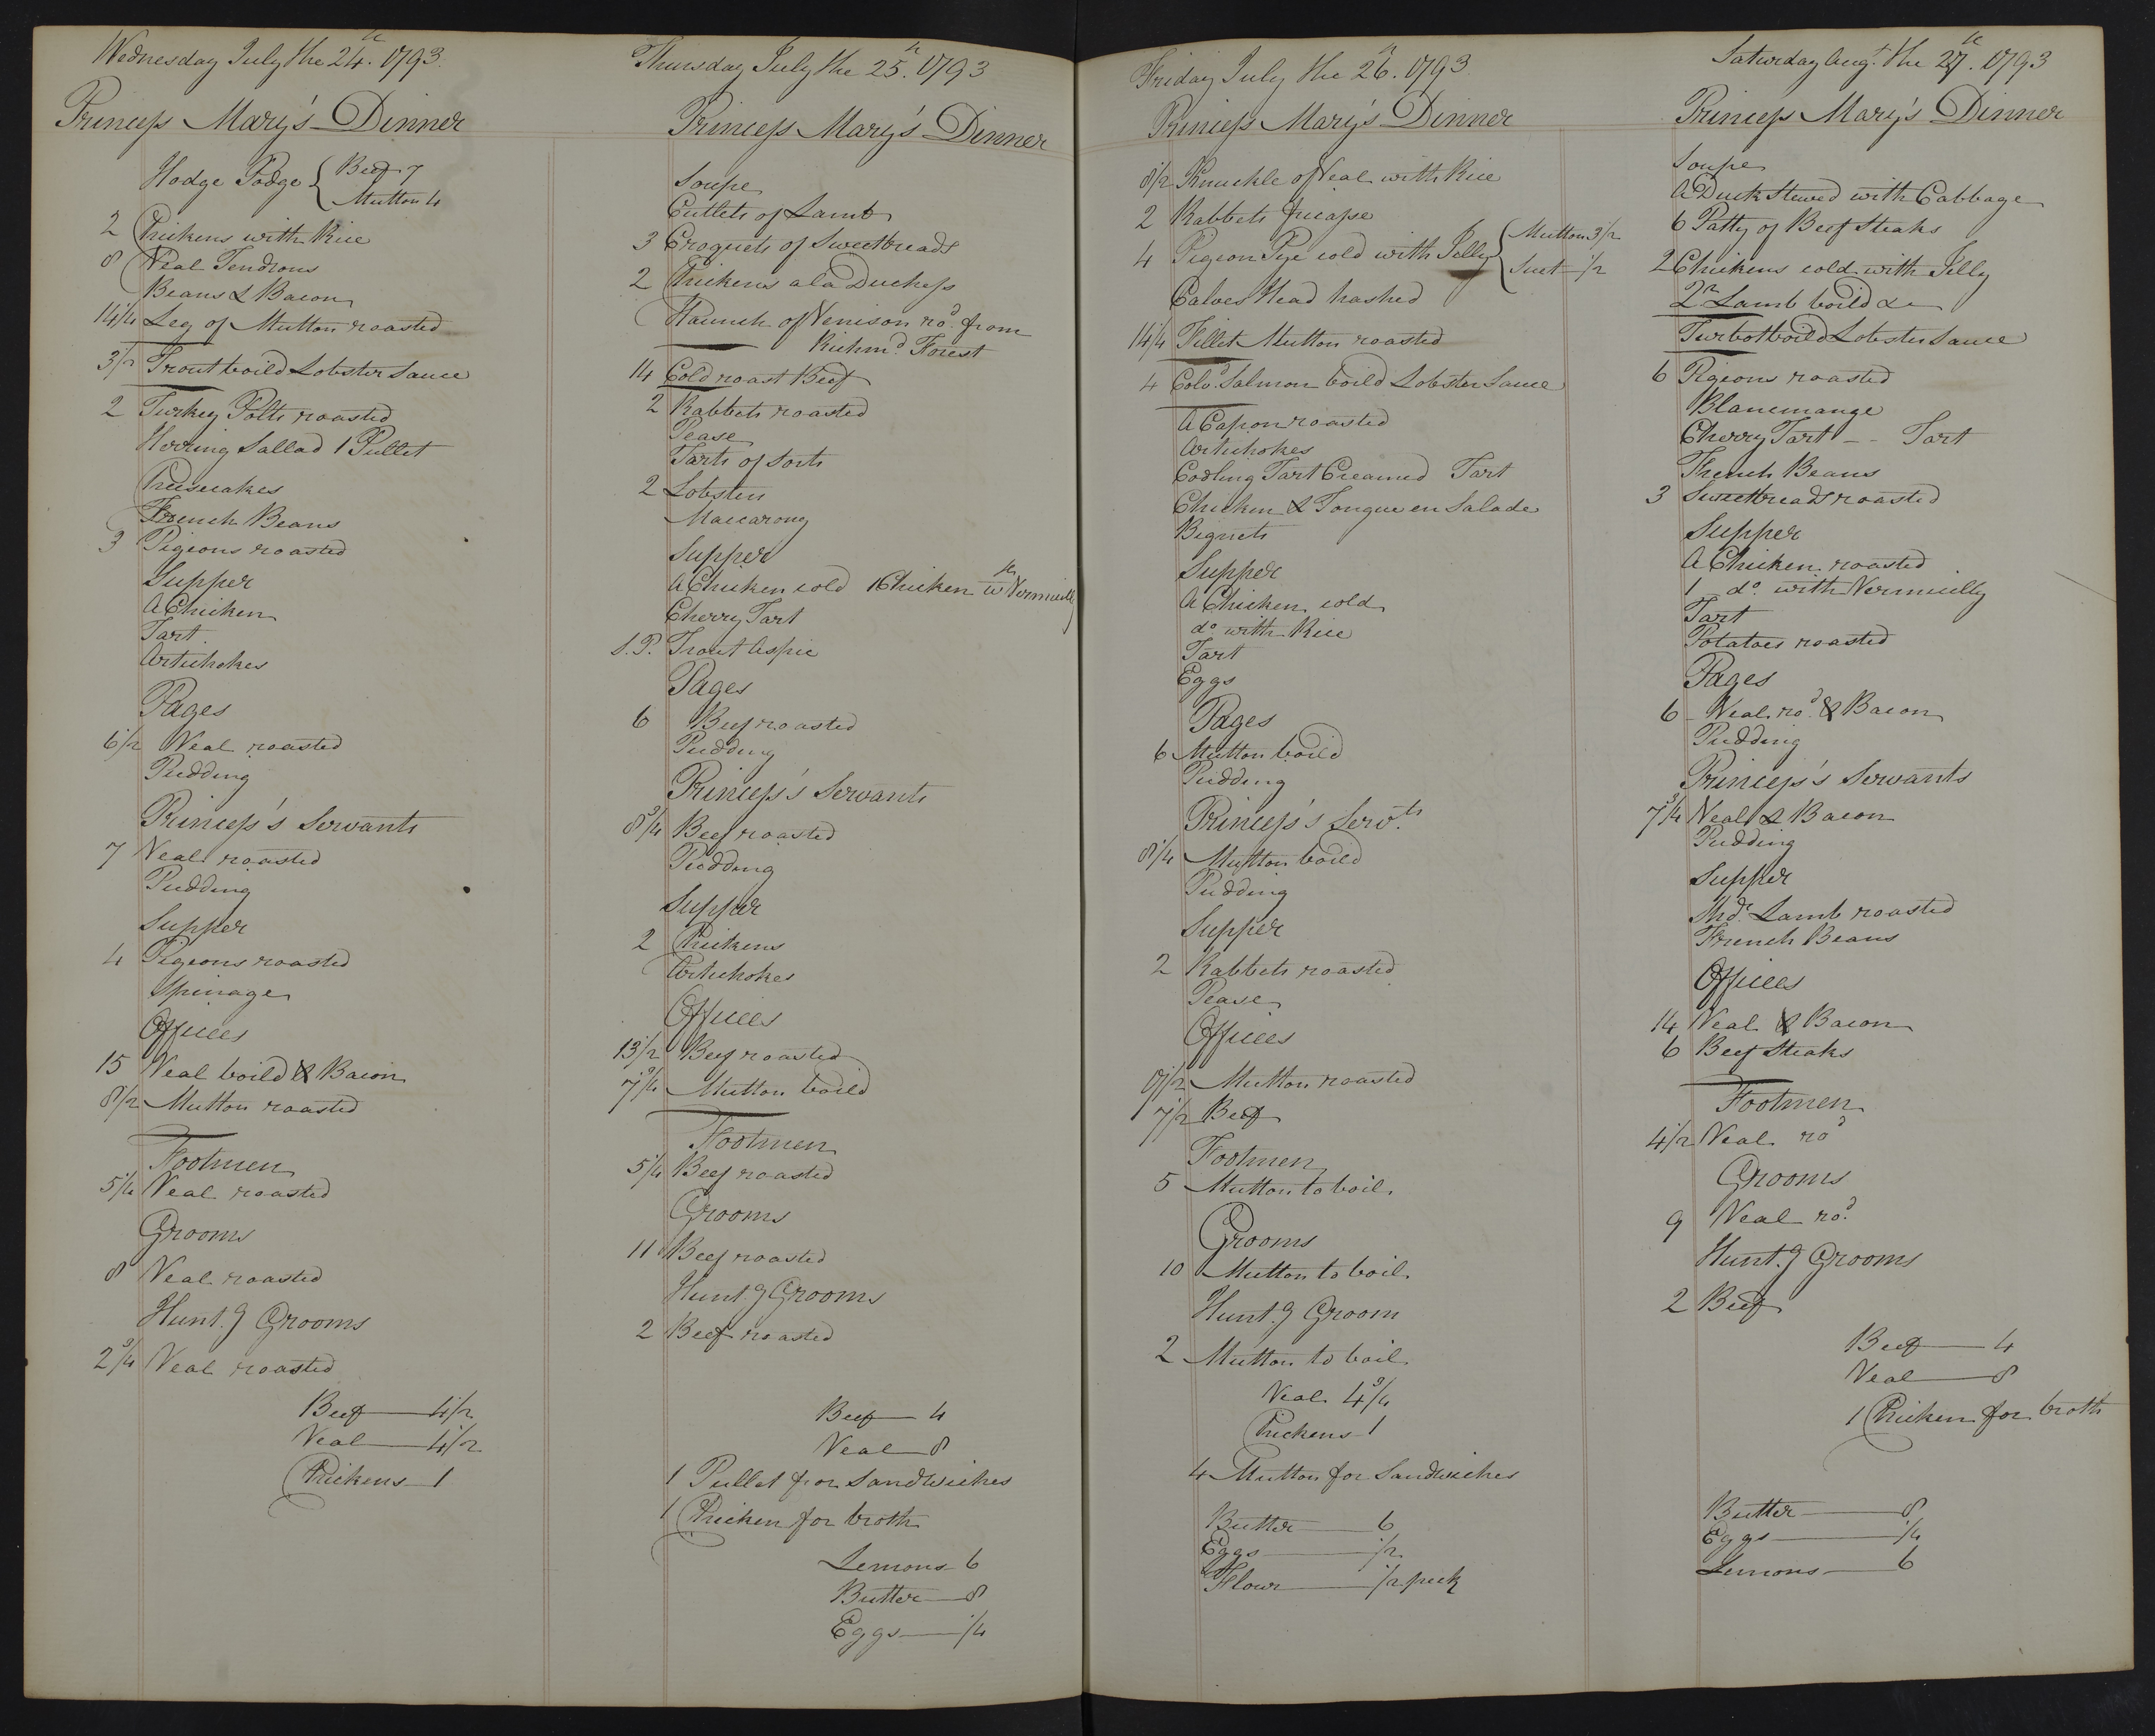 Wednesday July the 24th. 1793.
Princess Mary's Dinner
Hodge Podge { Beef 7
Mutton 4
2 Chickens with Rice
8 Veal Tendrons
Beans & Bacon
14 1/4 Leg of Mutton roasted
3 1/2 Trout boild Lobster Sauce
2 Turkey Polts roasted
Herring Sallad 1 Pullet
Cheesecakes
French Beans
3 Pigeons roasted
Supper
A Chicken
Tart
Artichokes
Pages
6 1/2 Veal roasted
Pudding
Princess's Servants
7 Veal roasted
Pudding
Supper
4 Pigeons roasted
Spinage
Offices
15 Veal boild & Bacon
8 1/2 Mutton roasted
Footmen
5 1/4 Veal roasted
Grooms
8 Veal roasted
Hunt.g Grooms
2 3/4 Veal roasted
Beef 4 1/2
Veal 4 1/2
Chickens 1
Thursday July the 25th. 1793
Princess Mary's Dinner
Soupe
Cutlets of Lamb
3 Croquets of Sweetbreads
2 Chickens a la Duchess
Haunch of Venison ro.d from
Richm.d Forest
14 Cold roast Beef
2 Rabbets roasted
Pease
Tarts of Sorts
2 Lobsters
Maccarony
Supper
A Chicken cold 1 Chicken wth Vermicelly
Cherry Tart
S.P. Trout Aspic
Pages
6 Beef roasted
Pudding
Princess's Servants
8 3/4 Beef roasted
Pudding
Supper
2 Chickens
Artichokes
Offices
13 1/2 Beef roasted
7 3/4 Mutton boild
Footmen
5 1/4 Beef roasted
Grooms
11 Beef roasted
Hunt.g Grooms
2 Beef roasted
Beef 4
Veal 8
1 Pullet for Sandwiches
1 Chicken for broth
Lemons 6
Butter 8
Eggs 1/4
Friday July the 26th. 1793.
Princess Mary's Dinner
8 1/2 Knuckle of Veal with Rice
2 Rabbets fricasse
4 Pigeon Pye cold with Jelly { Mutton 3 1/2
Suet 1/2
Calves Head hashed
14 1/4 Fillet Mutton roasted
4 Colo.d Salmon boild Lobster Sauce
A Capon roasted
Artichokes
Codling Tart Creamed Tart
Chicken & Tongue en Salade
Bignets
Supper
A Chicken cold
do with Rice
Tart
Eggs
Pages
6 Mutton boild
Pudding
Princess's Serv.ts
8 1/4 Mutton boild
Pudding
Supper
2 Rabbets roasted
Pease
Offices
9 1/2 Mutton roasted
7 1/2 Beef
Footmen
5 Mutton to boil
Grooms
10 Mutton to boil
Hunt.g Groom
2 Mutton to boil
Veal 4 3/4
Chickens 1
4 Mutton for Sandwiches
Butter 6
Eggs 1/2
Flour 1/2 peck
Saturday Aug.t the 27th. 1793
Princess Mary's Dinner
Soupe
A Duck Stewed with Cabbage
6 Patty of Beef Steaks
2 Chickens cold with Jelly
2r Lamb boild &c
Turbot boild Lobster Sauce
6 Pigeons roasted
Blancmange
Cherry Tart - - Tart
French Beans
3 Sweetbreads roasted
Supper
A Chicken roasted
1 do. with Vermicelly
Tart
Potatoes roasted
Pages
6 Veal ro.d & Bacon
Pudding
Princess's Servants
7 3/4 Veal & Bacon
Pudding
Supper
Shd.r Lamb roasted
French Beans
Offices
14 Veal & Bacon
6 Beef Steaks
Footmen
4 1/2 Veal rod
Grooms
9 Veal ro.d
Hunt.g Grooms
2 Beef
Beef 4
Veal 8
1 Chicken for broth
Butter 8
Eggs 1/4
Lemons 6